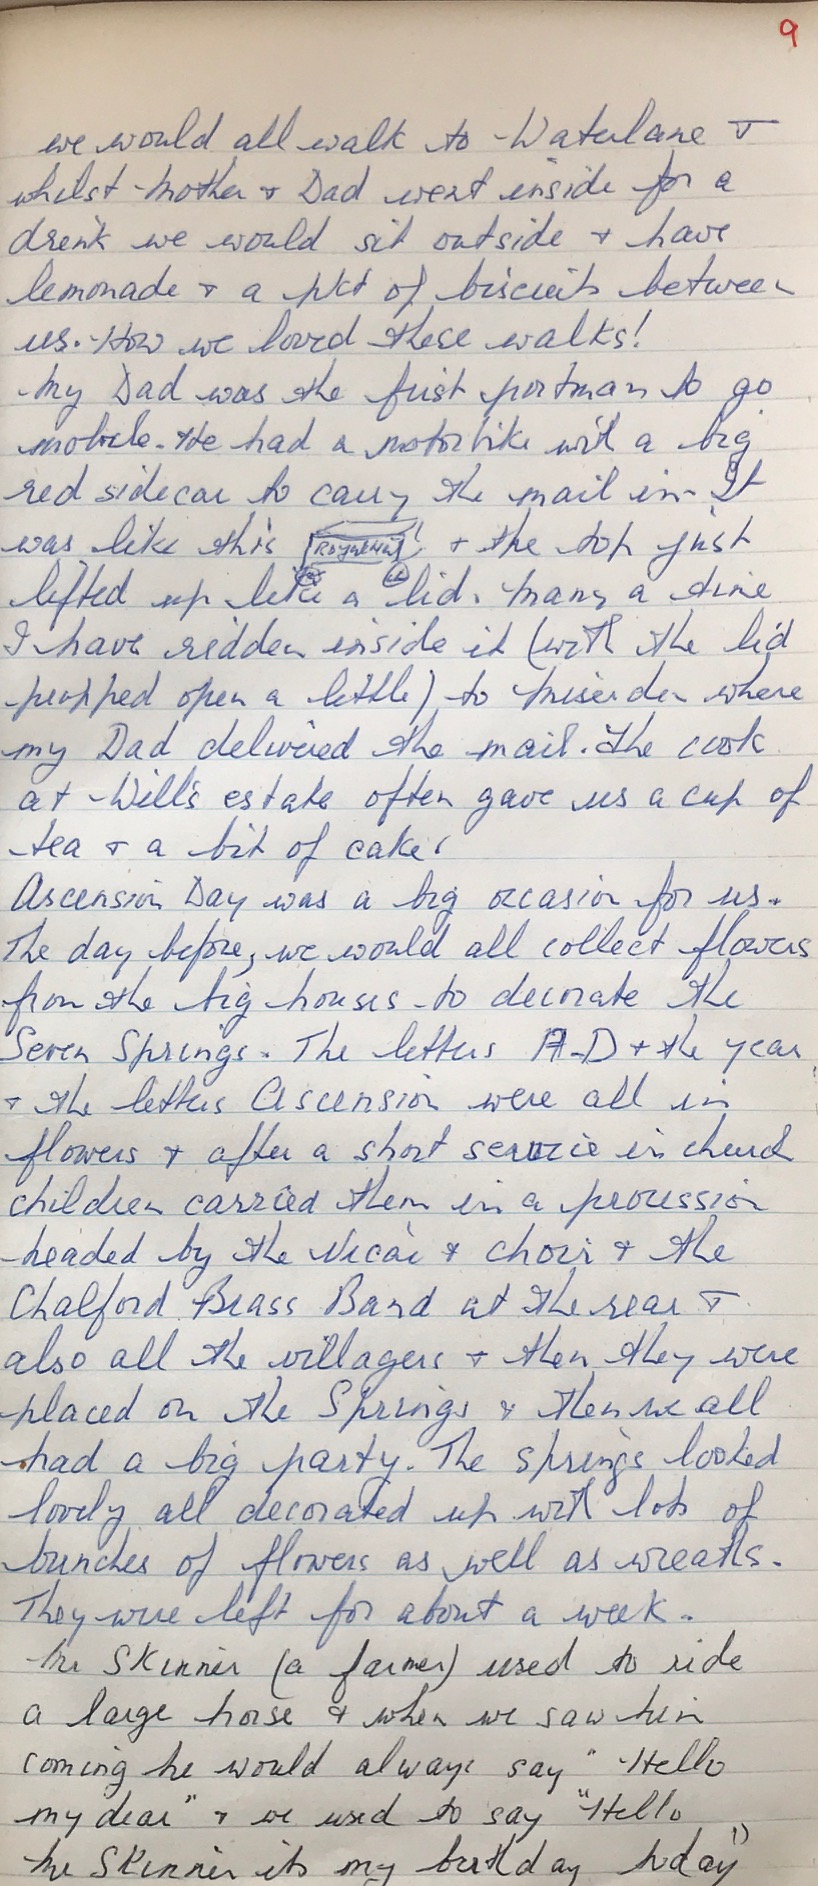 9
we would all walk to Waterlane +
whilst Mother + Dad went inside for a
drink we would sit outside + have
lemonade + a pkt of biscuits between
us. How we loved these walks!
My Dad was the first postman to go
mobile. He had a motorbike with a big
red sidecar to carry the mail in. It
was like this ROYAL MAIL + the top just
lifted up like a lid. Many a time
I have ridden inside it (with the lid
propped open a little) to Miserden where
my Dad delivered the mail. The cook
at Wills estate often gave us a cup of
tea + a bit of cake.
Ascension Day was a big occasion for us.
The day before, we would all collect flowers
from the big houses to decorate the
Seven Springs. The letters A.D + the year
+ the letters Ascension were all in
flowers + after a short service in church
children carried them in a procession
headed by the Vicar + choir + the
Chalford Brass Band at the rear +
also all the villagers + then they were
placed on the Springs + then we all
had a big party. The springs looked
lovely all decorated up with lots of
bunches of flowers as well as wreaths.
They were left for about a week.
Mr Skinner (a farmer) used to ride
a large horse + when we saw him
coming he would always say "Hello
my dear" + we used to say "Hello
Mr Skinner its my birthday today"